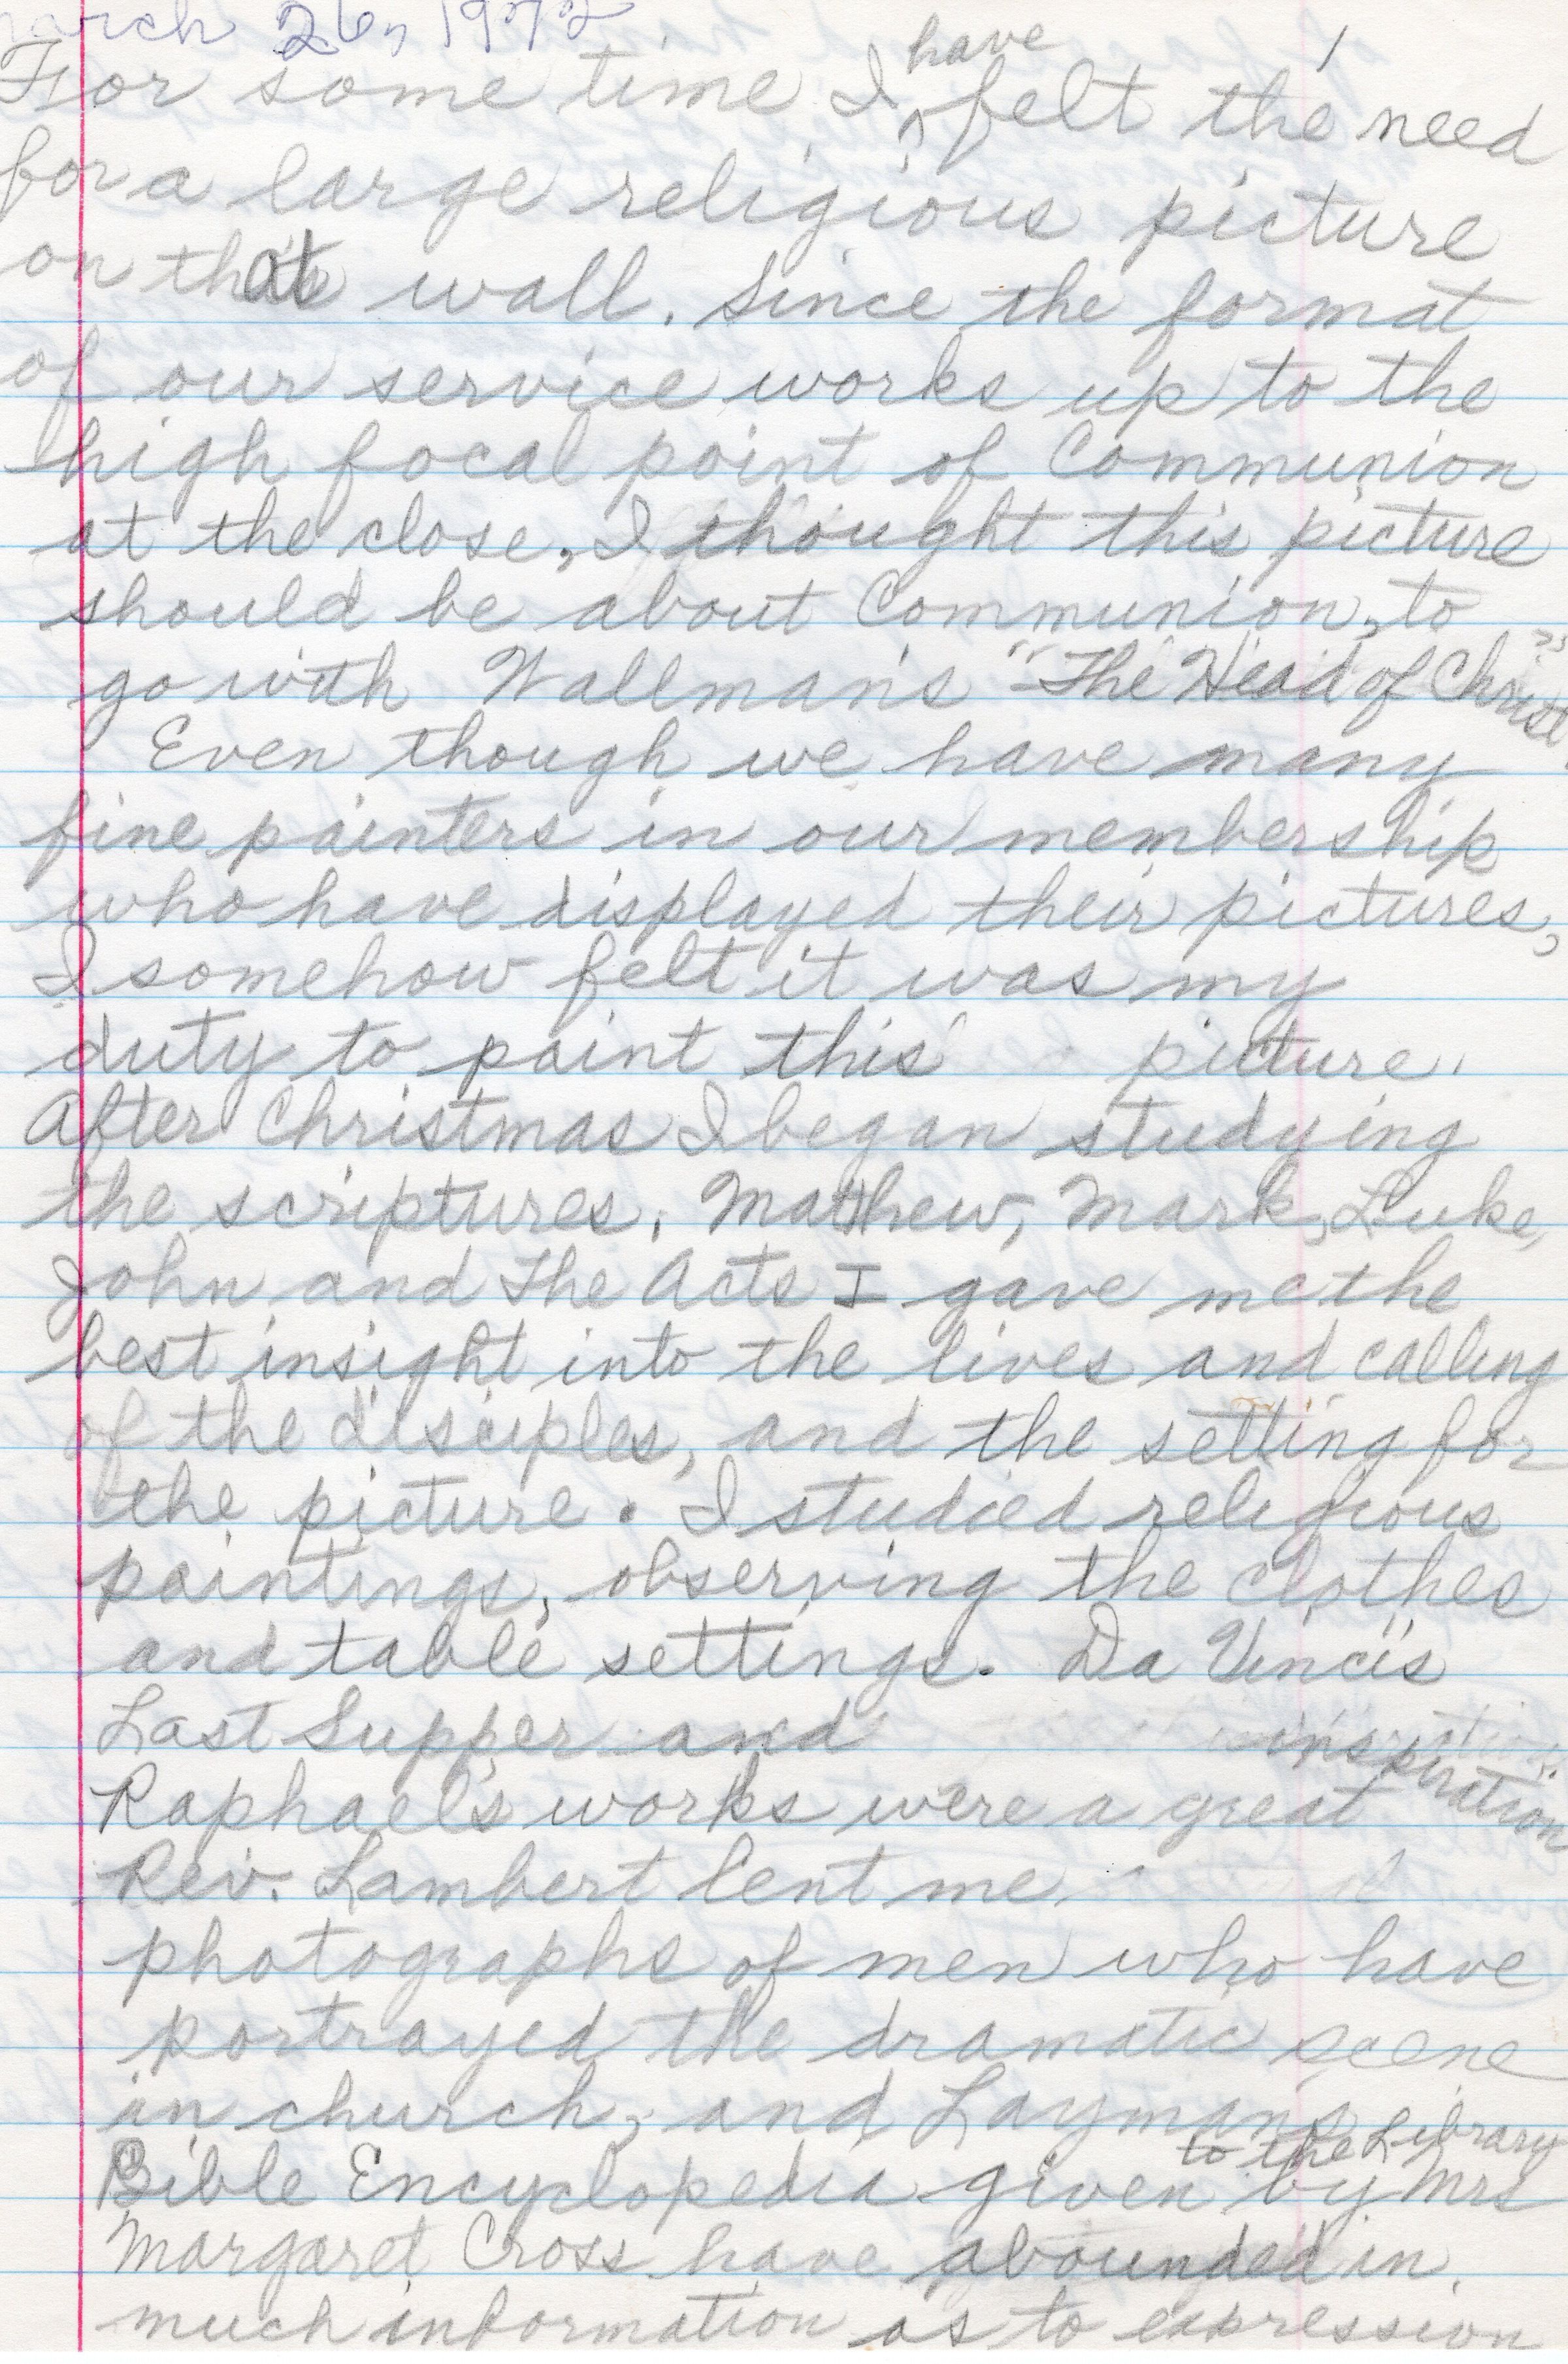 March 26, 1972
1
For some time I have felt the need
for a large religious picture
on that wall. Since the format
of our service works up to the
high focal point of Communion
at the close, I thought this picture
should be about Communion, to
go with Wallman's "The Head of Christ"
Even though we have many
fine painters in our membership
who have displayed their pictures,
I somehow felt it was my
duty to paint this picture.
After Christmas I began studying
the scriptures. Matthew, Mark, Luke,
John and The Acts I gave me the
best insight into the lives and calling
of the disciples, and the setting for
the picture. I studied religious
paintings, observing the clothes
and table settings. Da Vinci's
Last Supper and
Raphael's works were a great inspiration
Rev. Lambert lent me
photographs of men who have
portrayed the dramatic scene
in church, and Layman's
Bible Encyclopedia given to the Library by Mrs
Margaret Cross have abounded in
much information as to expression